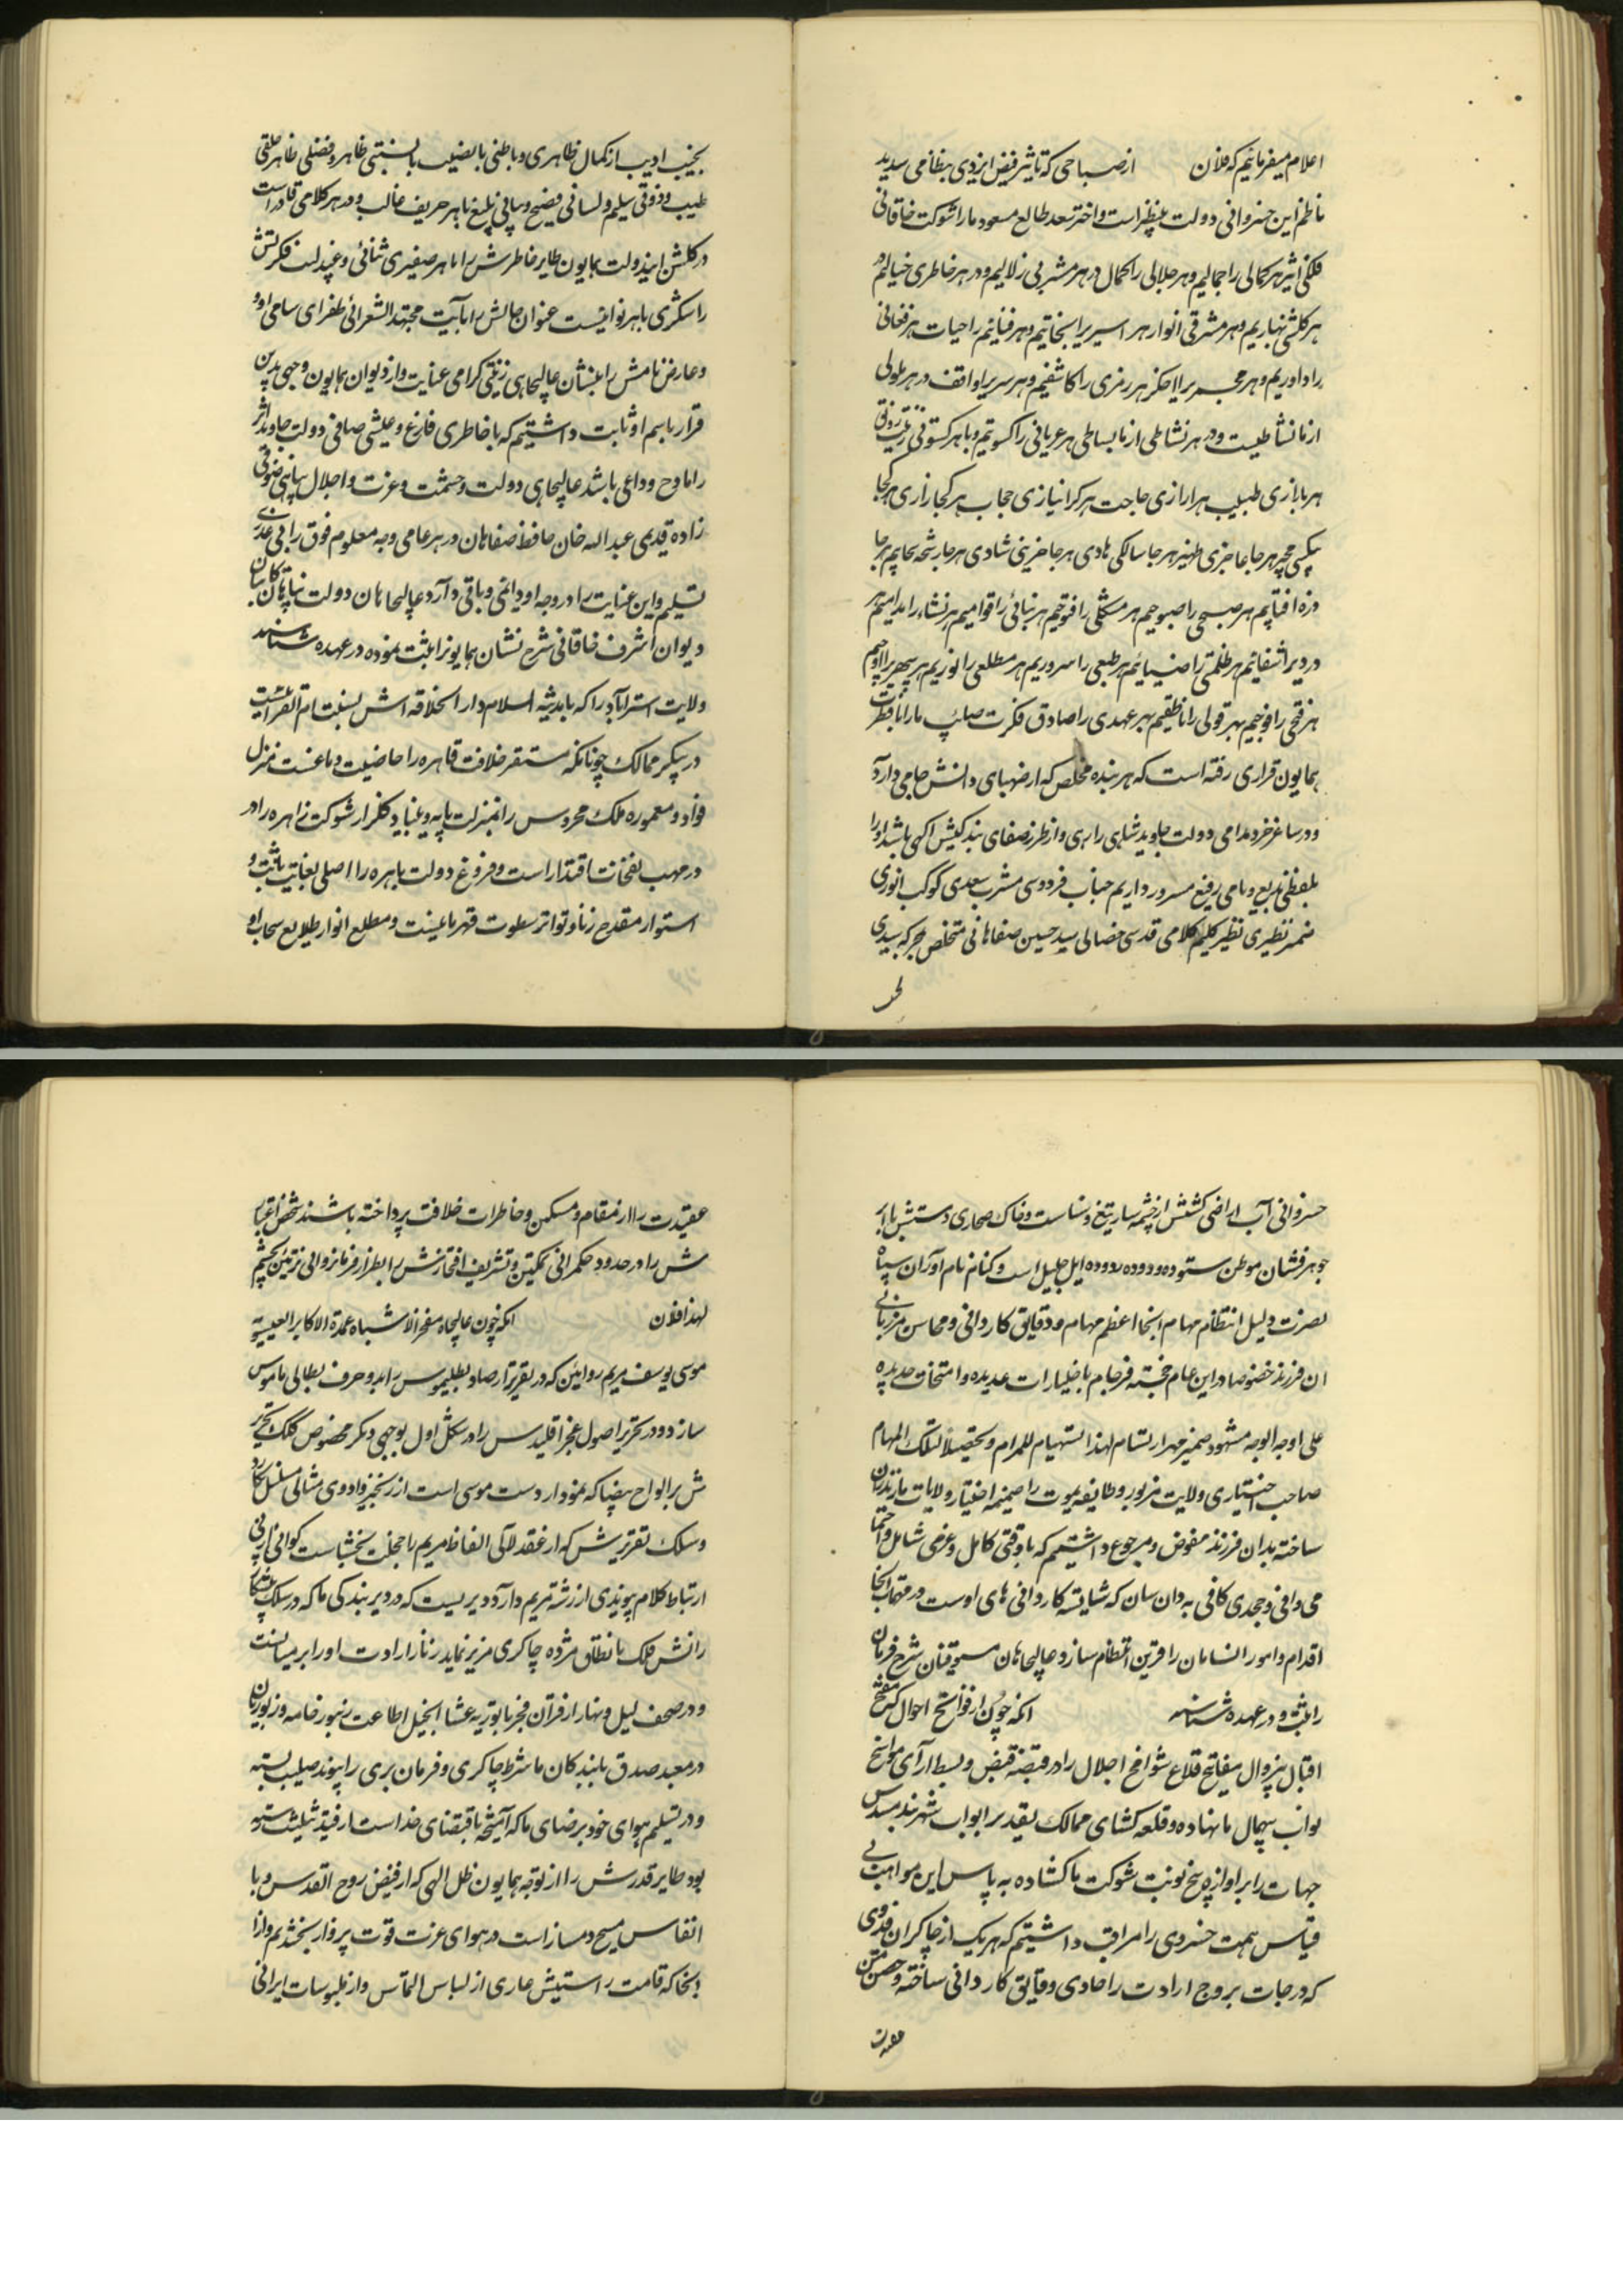 اعلام میفرمائیم که فلان از صباحی که تاثیر فیض ایزدی بنظامی سدید
ناظم این خسروانی دولت بینظیر است و اختر سعد طالع مسعود ما را شوکت خاقانی
فلکی اثیر هر کمالی را جمالیم و هر جلالی را کمال در هر مشربی زلالیم و در هر خاطری خیالیم
هر گلشنی بهاریم و هر مشرقی انوار هر اسیریرا نجاتیم و هر فنائیم را حیات هر فغانی
را داوریم و هر رمزی را کاشفیم و هر سریرا واقف در هر ملولی
از ما نشاطیست و در هر نشاطی از ما بساطی هر عریانی را کسوتیم و با هر کسوتی
هر بازاری طبیب هر ازاری حاجت هر کرا نیازی حجاب هر کجا رازی هر کجا
بیکسی مجیر هر جا عاجزی ظهیر هر جا سالکی هادی هر جا حزینی شادی هر جا رشحه سحابیم هر جا
ذره افتابیم هر صبحی را صبوحیم هر مشکلی را فتوحیم هر بنائی را قوامیم هر نشاء را مدامیم هر
دردیرا شفائیم هر ظلمتی را ضیائیم هر طبعی را سروریم هر مطلعی را نوریم هر سپهریرا اوجیم
هر فتحی را فوجیم بهر قولی را ناطقیم بهر عهدی را صادق فکرت صائب ما را با فطرت
همایون قراری رفته است که هر بنده مخلص که از صهبای دانش جامی دارد
و در ساغر خرد مدامی دولت جاوید شاهی را رهی و از طرز صفای بندگیش اگهی باشد او را
بلفظی بدیع و نامی رفیع مسرور داریم جناب فردوسی مشرب سعدی کوکب انوری
ضمیر نظیری نظیر کلیم کلامی قدسی خصالی سید حسین صفاهانی متخلص بمجمر که سیدی
نجیب ادیب از کمال ظاهری و باطنی با نصیب با نسبتی ظاهر و فضلی ظاهر خلقی
طیب و ذوقی سلیم و لسانی فصیح و بیانی بلیغ با هر حریف غالب و در هر کلامی قادر است
در گلشن این دولت همایون طایر خاطرش را با هر صفیری ثنائی و عندلیب فکرتش
را شکری با هر نوائیست عنوان حالش را بآیت مجتهد الشعرائی طغرای سامی داد
و عارض نامش را بنشان عالیجاهی زینتی کرامی عنایت و از دیوان همایون وجهی بدین
قرار باسم او ثابت داشتیم که با خاطری فارغ و عیشی صافی دولت جاوید اثر
را مادح و داعی باشد عالیجاهی دولت و حشمت و عزت و اجلال پناهی
زاده قدیمی عبد الله خان حافظ صفاهان در هر عامی وجه معلوم فوق را بی عذری
تسلیم و این عنایت را در وجه او دائمی و باقی دارد عالیجاهان دولت پناهان
دیوان اشرف خاقانی شرح نشان همایونرا ثبت نموده در عهده شناسند
ولایت استراباد را که بمدینة السلام دار الخلافه اش نسبت تام القرائیست
در پیکر ممالک چونانکه مستقر خلافت قاهره را خاصیت دماغست منزل
فواد و معموره ملک محروس را بمنزلت پایه و بنیاد گلزار شوکت زاهره را در
در مهب نفخات اقتدار است و فروغ دولت باهره را اصلی بغایت ثابت و
استوار مقدح زناد تواتر سطوت قهرمانیست و مطلع انوار طلایع سحاب او
خسروانی آب اراضی کشتش از چشمه سار تیغ و سنانست و خاک صحاری دستش با ابر
جوهر فشان موطن ستوده دودوده ایل جلیل است و کنام نام آوران سپاه
نصرت دلیل انتظام مهام انجا اعظم مهام و دقایق کاردانی و محاسن مرزبانی
ان فرزند خصوصا در این عام خجسته فرجام باختیارات عدیده و امتحانات جدیده
علی اوجه الوجه مشهود ضمیر مهر ارتسام لهذا تتمیما للمرام و تحصیلا لتلک المهام
صاحب اختیاری ولایت مزبور و طایفه یموت را ضمیمه اختیار ولایات مازندران
ساخته بدان فرزند مفوض و مرجوع داشتیم که با وقتی کامل و عزمی شامل و اهتما
می وافی و جهدی کافی به دان سان که شایسته کاردانی های اوست در مهمات انجا
اقدام و امور انسامان را قرین انتظام سازد عالیجاهان مستوفیان شرح فرمان
را ثبت و در عهده شناسند انکه چون از فواتح احوال که مفتح
اقبال بیزوال مفاتیح قلاع شوامخ اجلال را در قبضه قبض و بسط ارآی
نواب بیهمال ما نهاده و قلعه کشای ممالک تقدیر ابواب شهربند مسدس
جهات را بر اوازه پنج نوبت شوکت ما کشاده به پاس این مواهب بی
قیاس همت خسروی را مراقب داشتیم که هر یک از چاکران فدوی
که درجات بروج ارادت را حاوی و دقایق کاردانی ساخته و حصن متین
عقیدت را از مقام و مسکن و خاطرات خلافت پرداخته باشند شخص اعتبار
ش را در حدود حکمرانی تمکین و تشریف افتخارش را بطراز فرمانروائی تزئین بخشیم
لهذا فلان انکه چون عالیجاه مفخر الاشباه عمدة الاکابر العیسویه
موسی یوسف مریم روائین که در تقریر ارصاد بطلیموس را بدو حرف بطالی ناموس
سازد و در تحریر اصول عجز اقلیدس را در شکل اول بوجهی دیگر مخصوص کلک تحریر
ش بر الواح بیضا که نمودار دست موسی است از زنجیر داودی مثالی مسلسل نکارد
و سلک تقریرش که از عقد لآلی الفاظ مریم را خجلت بخشاست
ارتباط کلام پیوندی از رشته مریم دارد دیریست که در دیر بندگی ما که در سلک
رانش فلک با نطاق مژده چاکری مزید نماید زنار ارادت او را بر میانست
و در صحف لیل و نهار از فرقان فجر تا بوریه عشا انجیل اطاعت زبور خامه ورد زبان
در معبد صدق با بندگان ما شرط چاکری و فرمان بری را پیوند صلیب بسته
و در تسلیم هوای خود برضای ما که آمیخته با قتضای خداست از قید تثلیث رسته
بود طایر قدرش را از توجه همایون ظل الهی که از فیض روح القدس و با
انفاس مسیح دمساز است در هوای عزت قوت پرواز بخشدیم و از ا
نجا که قامت راستیش عاری از لباس التماس و از ملبوسات ایرانی